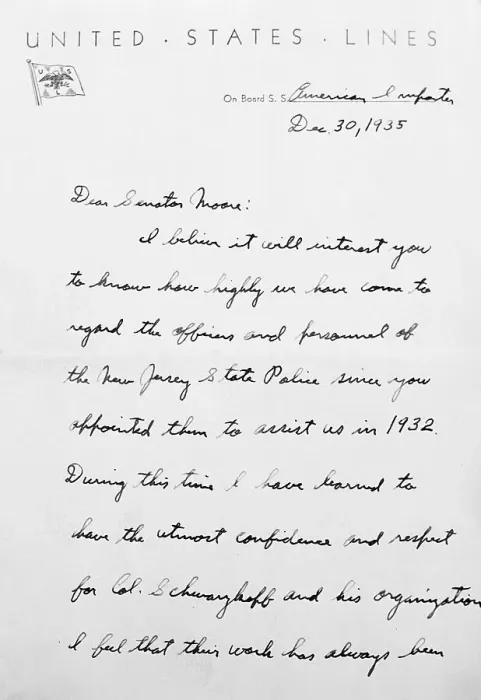 UNITED · STATES · LINES
U S
L
On Board S. S. American Importer
Dec. 30, 1935
Dear Senator Moore:
I believe it will interest you
to know how highly we have come to
regard the officers and personnel of
the New Jersey State Police since you
appointed them to assist us in 1932.
During this time I have learned to
have the utmost confidence and respect
for Col. Schwarzkopf and his organization
I feel that their work has always been